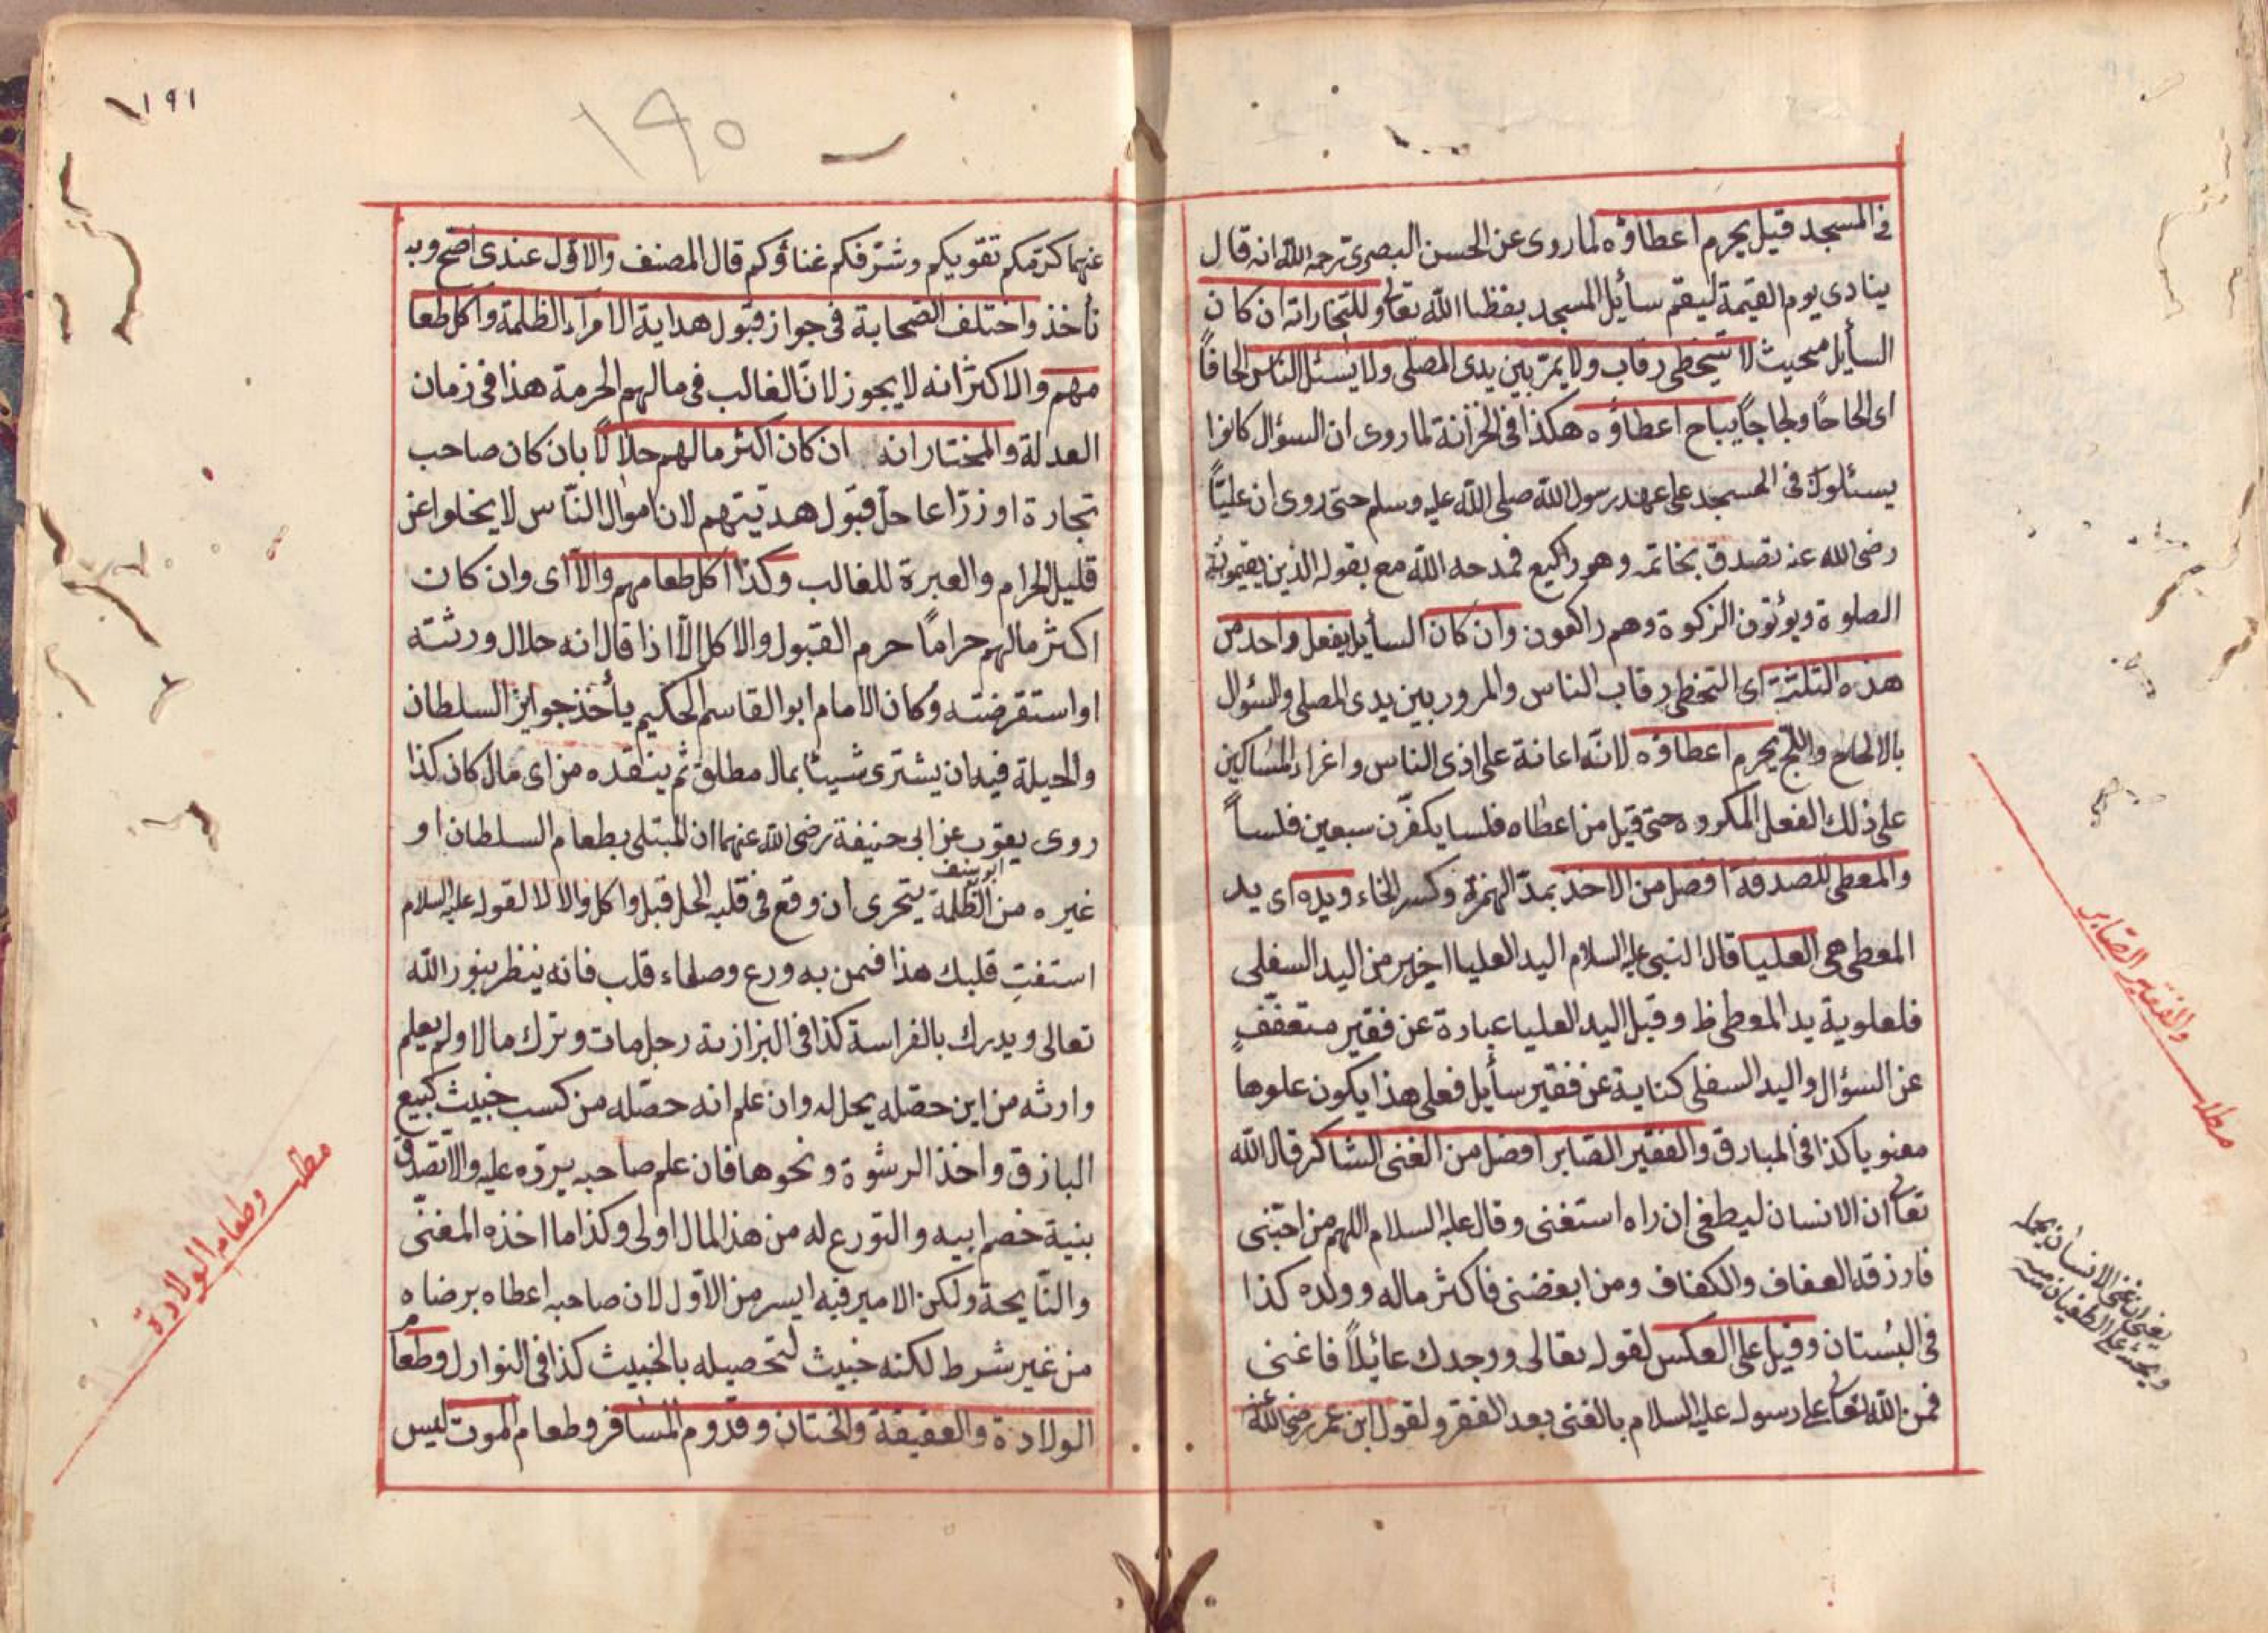 في المسجد قيل يحرم اعطاؤه لما روى عن الحسن البصرى رحمه الله انه قال
ينادى يوم القيمة ليقم سأيل المسجد بغضا الله تعالى وللتجار انه ان كان
السأيل بحيث لا يتخطى رقاب ولا يمرّ بين يدى المصلى ولا يسئل الناس الحافاً
اى الحاحاً ولجاجاً يباح اعطاؤه هكذا فى الخزانة لما روى ان السؤال كانوا
يسئلون فى المسجد على عهد رسول الله صلى الله عليه وسلم حتى روى ان عليّاً
رضى الله عنه تصدق بخاتمه وهو راكع فمدحه الله مع بقوله الذين يقيمون
الصلوة ويؤتون الزكوة وهم راكعون وان كان السأيل يفعل واحد من
هذه الثلثة اى التخطى رقاب الناس والمرور بين يدى المصلى والسئوال
بالالحاح واللّج يحرم اعطاؤه لانّه اعانة على اذى الناس واغراء المساكين
على ذلك الفعل المكروه حتى قيل من اعطاه فلسا يكفّرن سبعين فلساً
والمعطى للصدقة افضل من الاخذ بمدّ الهمزة وكسر الخاء ويده اى يد
المعطى هى العليا قال النبى عليه السلام اليد العليا اخير من اليد السفلى
فلعلوية يد المعطى ظ وقيل اليد العليا عبارة عن فقير متعفّفٍ
عن السؤال واليد السفلى كناية عن فقير سأيل فعلى هذا يكون علوها
معنويا كذا فى المبارق والفقير الصّابر افضل من الغنى الشاكر قال الله
تعالى ان الانسان ليطغى ان راه استغنى وقال عليه السلام اللهم من احبّنى
فارزقه العفاف والكفاف ومن ابغضنى فاكثر ماله وولده كذا
فى البُستان وقيل على العكس لقوله تعالى ووجدك عائيلاً فاغنى
فمن الله تعالى على رسوله عليه السلام بالغنى بعد الفقر ولقول ابن عمر رضى الله عنه
مطلب والفقير الصّابر
يعنى ان غنى الانسان يحمله
ويحثه على الطغيان منه
١٩١
١٩٠
عنهما كرّمكم تقويكم وشرّفكم غناؤكم قال المصنف والاوّل عندى اصحّ وبه
نأخذ واختلف الصّحابة فى جواز قبول هداية الامرآء الظلمة واكل طعا
مهم والاكثر انه لا يجوز لانّ الغالب فى مالهم الحرمة هذا فى زمان
العدلة والمختار انه ان كان اكثر مالهم حلالاً بان كان صاحب
تجارة او زرّاعا حلّ قبول هديّتهم لان اموال النّاس لا يخلوا عن
قليل الحرام والعبرة للغالب وكذا اكل طعامهم والّا اى وان كان
اكثر مالهم حراماً حرم القبول والاكل الّا اذا قال انه حلال ورثته
او استقرضته وكان الامام ابو القاسم الحكيم يأخذ جوايز السلطان
والحيلة فيه ان يشترى شيئا بمال مطلق ثم ينقده من اى مال كان كذا
روى يعقوب عن ابى حنيفة رضى الله عنهما ان المبتلى بطعام السلطان او
ابو يوسف
غيره من الظّلمة يتحرى ان وقع فى قلبه الحل قبل واكل والا لا لقوله عليه السلام
استفتِ قلبك هذا فيمن به ورع وصفاء قلب فانه ينظر بنور الله
تعالى ويدرك بالفراسة كذا فى البزازية رجل مات وترك مالا ولم يعلم
وارثه من اين حصّله يحل له وان علم انه حصّله من كسب خبيث كبيع
الباذق واخذ الرشوة ونحوها فان علم صاحبه يردّه عليه والا تصدّق
بنية خصم ابيه والتورع له من هذ المال اولى وكذا ما اخذه المغنّى
والنّايحة ولكن الامير فيه ايسر من الاوّل لان صاحبه اعطاه برضاه
من غير شرط لكنه خبيث لتحصيله بالخبيث كذا فى النوازل وطعام
الولادة والعقيقة والختان وقدوم المسافر وطعام الموت ليس
مطلب وطعام الولادة